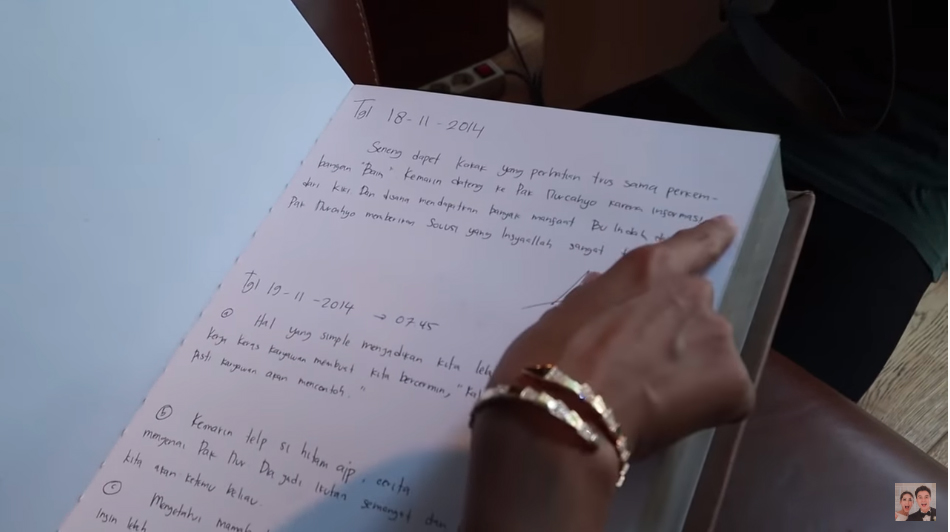 Tgl 18-11-2014
Seneng dapet Kakak yang perhatian trus sama perkem-
bangan "Bain" Kemarin dateng ke Pak Nurcahyo karena informasi
dari Kiki. Dan disana mendapatkan banyak manfaat Bu Indah
Pak Nurcahyo memberikan Solusi yang Insyaallah sangat
Tgl 19-11-2014 → 07.45
(a) Hal yang simple mengadikan kita leb
Kerja keras karyawan membuat kita bercermin, "Kal
Pasti karyawan akan mencontoh."
(b) Kemarin telp si hitam ajp, cerita
mengenai Pak Nur Dia jadi ikutan semangat dan
kita akan ketemu beliau.
(c) Mengetahui Mamah
Ingin lebih